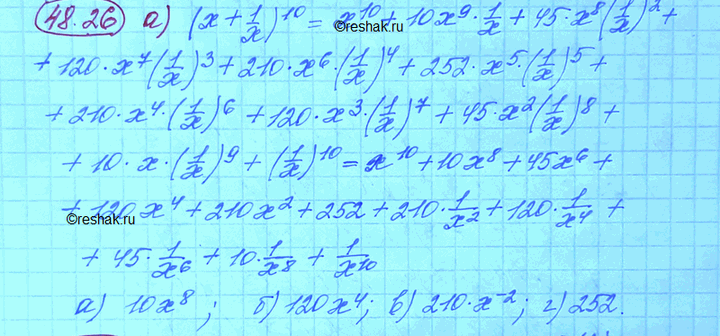 48.26 а) (x + 1/x)^10 = x^10 + 10x^9 · 1/x + 45 · x^8 (1/x)^2 +
©reshak.ru
+ 120 · x^7 (1/x)^3 + 210 · x^6 · (1/x)^4 + 252 · x^5 · (1/x)^5 +
+ 210 · x^4 · (1/x)^6 + 120 · x^3 · (1/x)^7 + 45 · x^2 (1/x)^8 +
+ 10 · x · (1/x)^9 + (1/x)^10 = x^10 + 10x^8 + 45x^6 +
+ 120x^4 + 210x^2 + 252 + 210 · 1/x^2 + 120 · 1/x^4 +
©reshak.ru
+ 45 · 1/x^6 + 10 · 1/x^8 + 1/x^10
а) 10x^8; б) 120x^4; в) 210 · x^-2; г) 252.